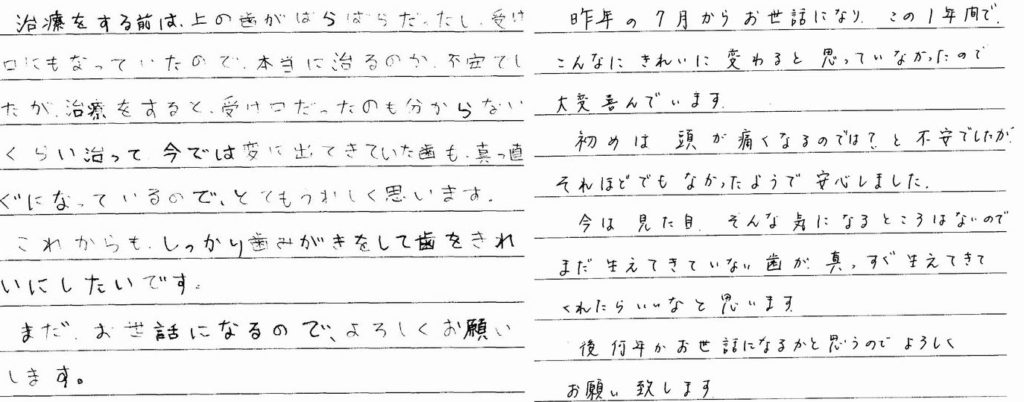 治療をする前は、上の歯がばらばらだったし、受け
口にもなっていたので、本当に治るのか、不安でし
たが、治療をすると、受け口だったのも分からない
くらい治って、今では変に出てきていた歯も、真っ直
ぐになっているので、とてもうれしく思います。
これからも、しっかり歯みがきをして歯をきれ
いにしたいです。
まだ、お世話になるので、よろしくお願い
します。
昨年の7月からお世話になり、この1年間で、
こんなにきれいに変わると思っていなかったので
大変喜んでいます。
初めは頭が痛くなるのでは?と不安でしたが、
それほどでもなかったようで安心しました。
今は見た目、そんな気になるところはないので
まだ生えてきていない歯が、真っすぐ生えてきて
くれたらいいなと思います。
後何年かお世話になるかと思うのでよろしく
お願い致します。